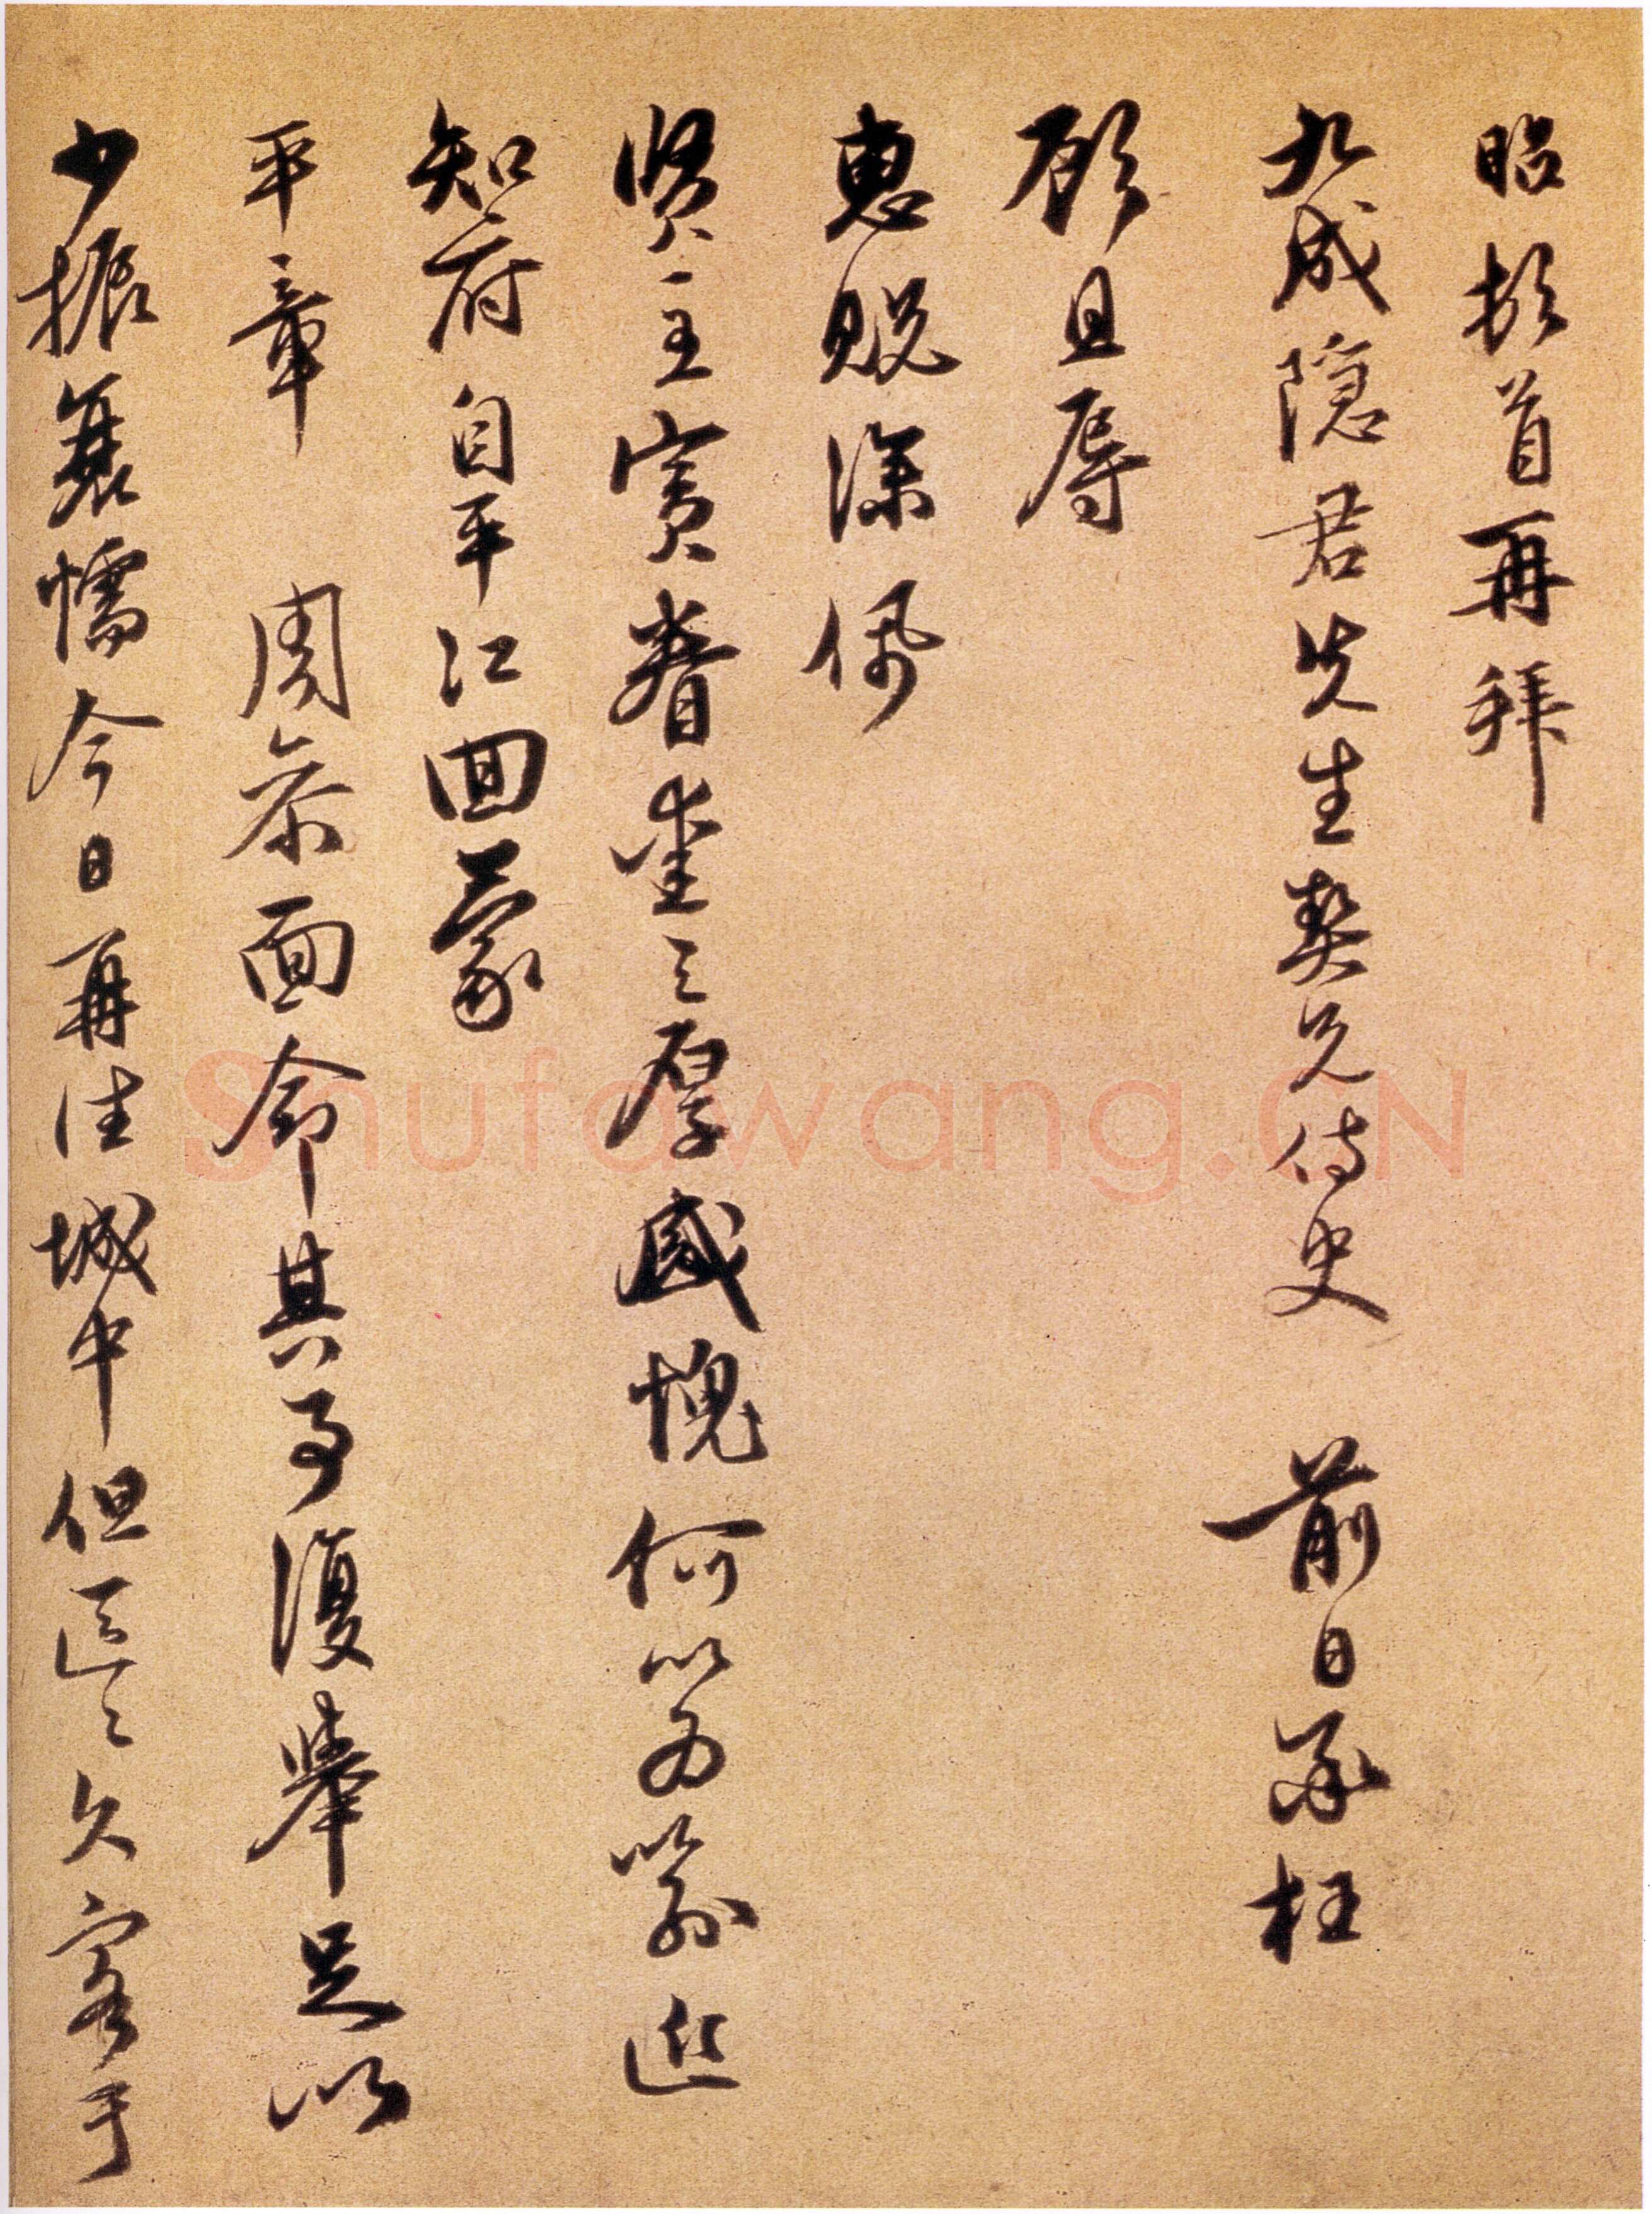 昭頓首再拜
九成隱君先生契兄侍史 前日承枉
顧且辱
惠貺深佩
賢主賓眷
之厚感愧何以為
知府自平江回蒙
平章 周參面命其子復舉足以
少振衰懦今日再往城中但區々久客于
Shufawang.CN